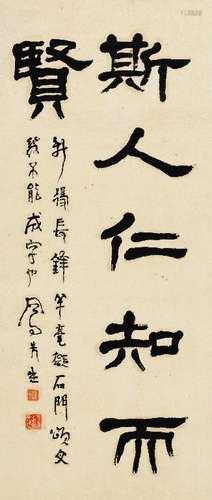 斯人仁知而
賢
新得長鋒羊毫擬石門頌文
幾不能成字也
先生